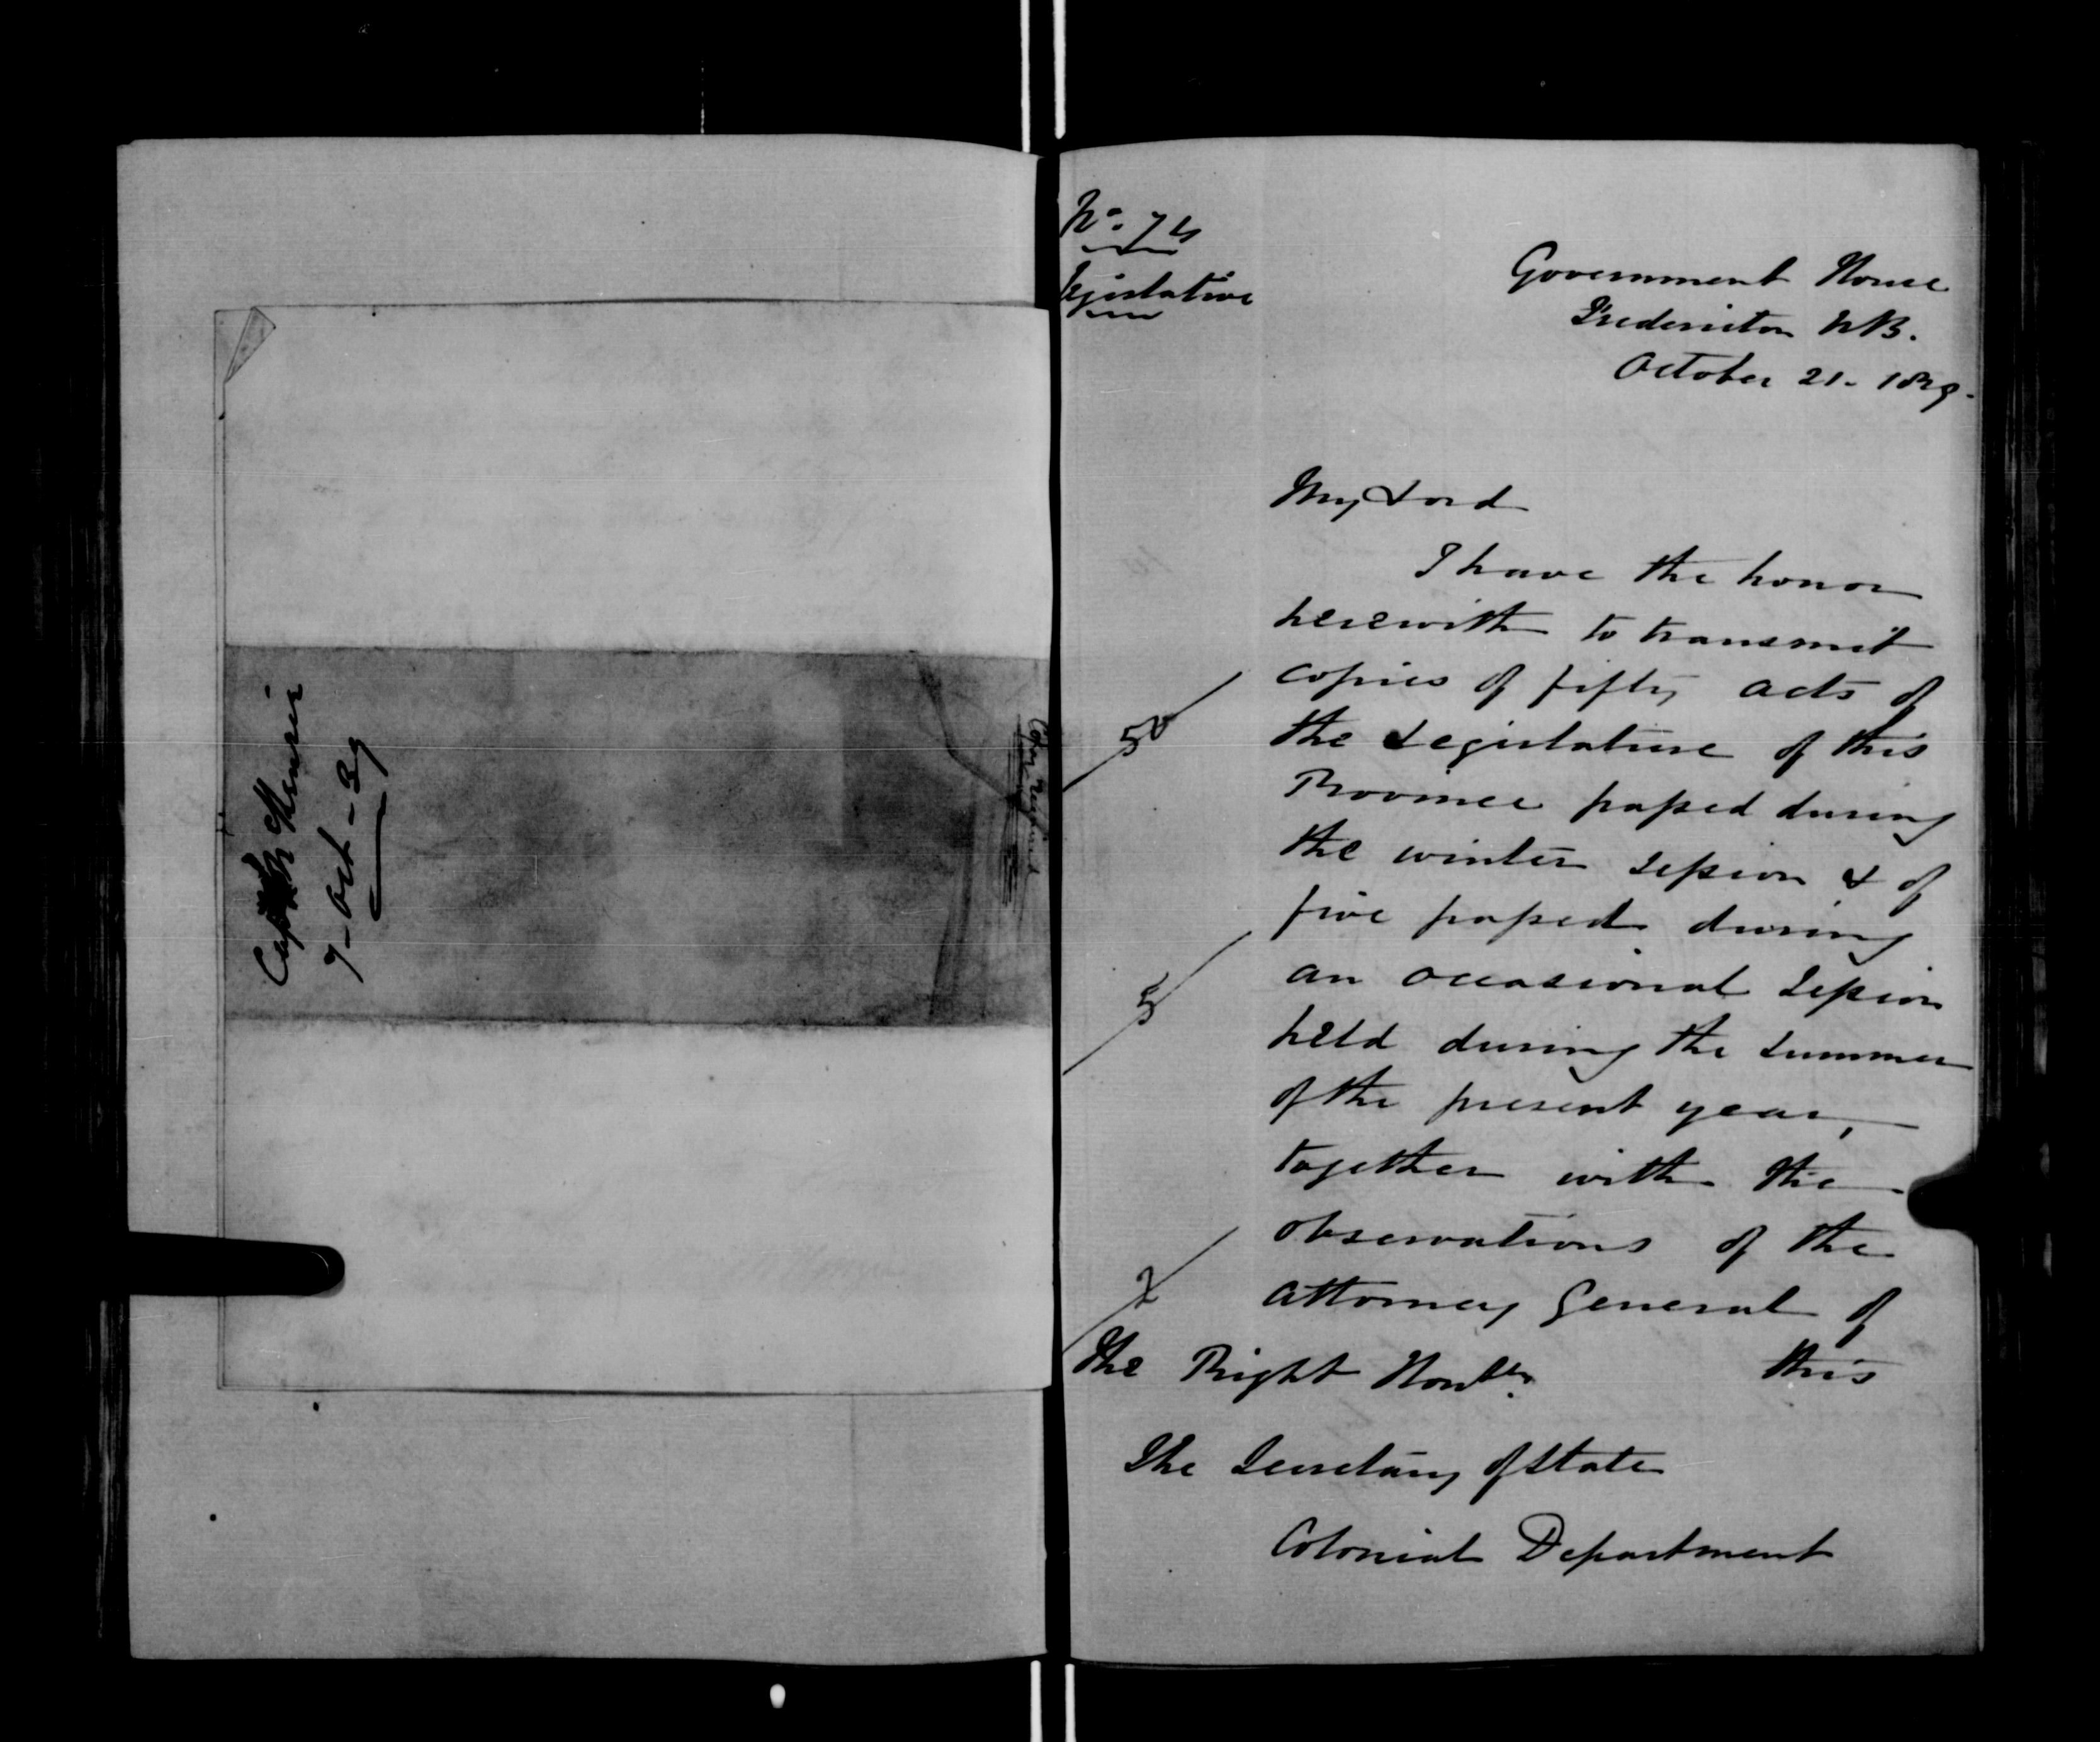 7 - Oct - 39
No. 74
Legislative
Government House
Fredericton NB.
October 21 - 1839.
My Lord
I have the honor
herewith to transmit
copies of fifty acts of
50
the Legislature of this
Province passed during
the winter session & of
five passed during
5
an occasional session
held during the summer
of the present year,
together with the
observations of the
2
Attorney General of
this
The Right Honble.
The Secretary of State
Colonial Department